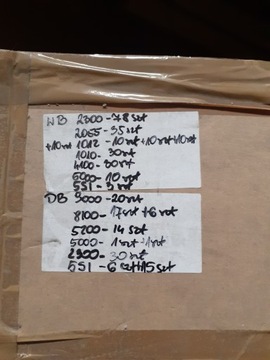 WB 2300 - 78 szt
2055 - 35 szt
+10 szt 1012 - 10 szt +10 szt +10 szt
1010 - 30 szt
4100 - 30 szt
5000 - 10 szt
551 - 3 szt
DB 9000 - 20 szt
8100 - 17 szt + 6 szt
5200 - 14 szt
5000 - 1 szt + 1 szt
2900 - 30 szt
551 - 6 szt + 15 szt